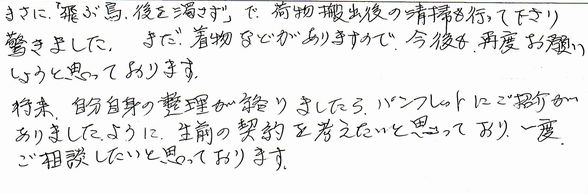 まさに、「飛ぶ鳥、後を濁さず」で、荷物搬出後の清掃も行って下さり
驚きました。まだ、着物などがありますので、今後も、再度お願い
しようと思っております。
将来、自分自身の整理が終りましたら、パンフレットにご紹介が
ありましたように、生前の契約を考えたいと思っており、一度、
ご相談したいと思っております。